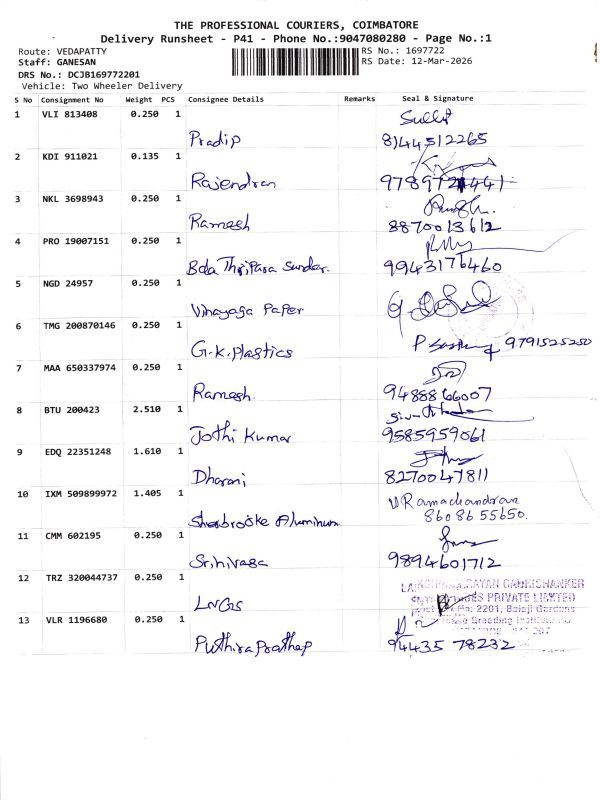 THE PROFESSIONAL COURIERS, COIMBATORE
Delivery Runsheet - P41 - Phone No.:9047080280 - Page No.:1
Route: VEDAPATTY
RS No.: 1697722
Staff: GANESAN
RS Date: 12-Mar-2026
DRS No.: DCJB169772201
Vehicle: Two Wheeler Delivery
S No Consignment No Weight PCS Consignee Details Remarks Seal & Signature
1 VLI 813408 0.250 1
Pradip 8144512265
2 KDI 911021 0.135 1
Rajendran
3 NKL 3698943 0.250 1
Ramesh 8870013612
4 PRO 19007151 0.250 1
Bala Thripura Sunder. 9943176460
5 NGD 24957 0.250 1
Vinayaga Paper
6 TMG 200870146 0.250 1
G.K.Plastics 9791525250
7 MAA 650337974 0.250 1
Ramesh. 9488866007
8 BTU 200423 2.510 1
Jothi Kumar 9585959061
9 EDQ 22351248 1.610 1
Dharani 8270047811
10 IXM 509899972 1.405 1
V Ramachandran
Sherbrooke Aluminum 8608655650.
11 CMM 602195 0.250 1
Srinivasa 9894601712
12 TRZ 320044737 0.250 1
LNGS
PRIVATE LIMITED
2201, Balaji Gardens
13 VLR 1196680 0.250 1
Puthiraprathap 94435 78232